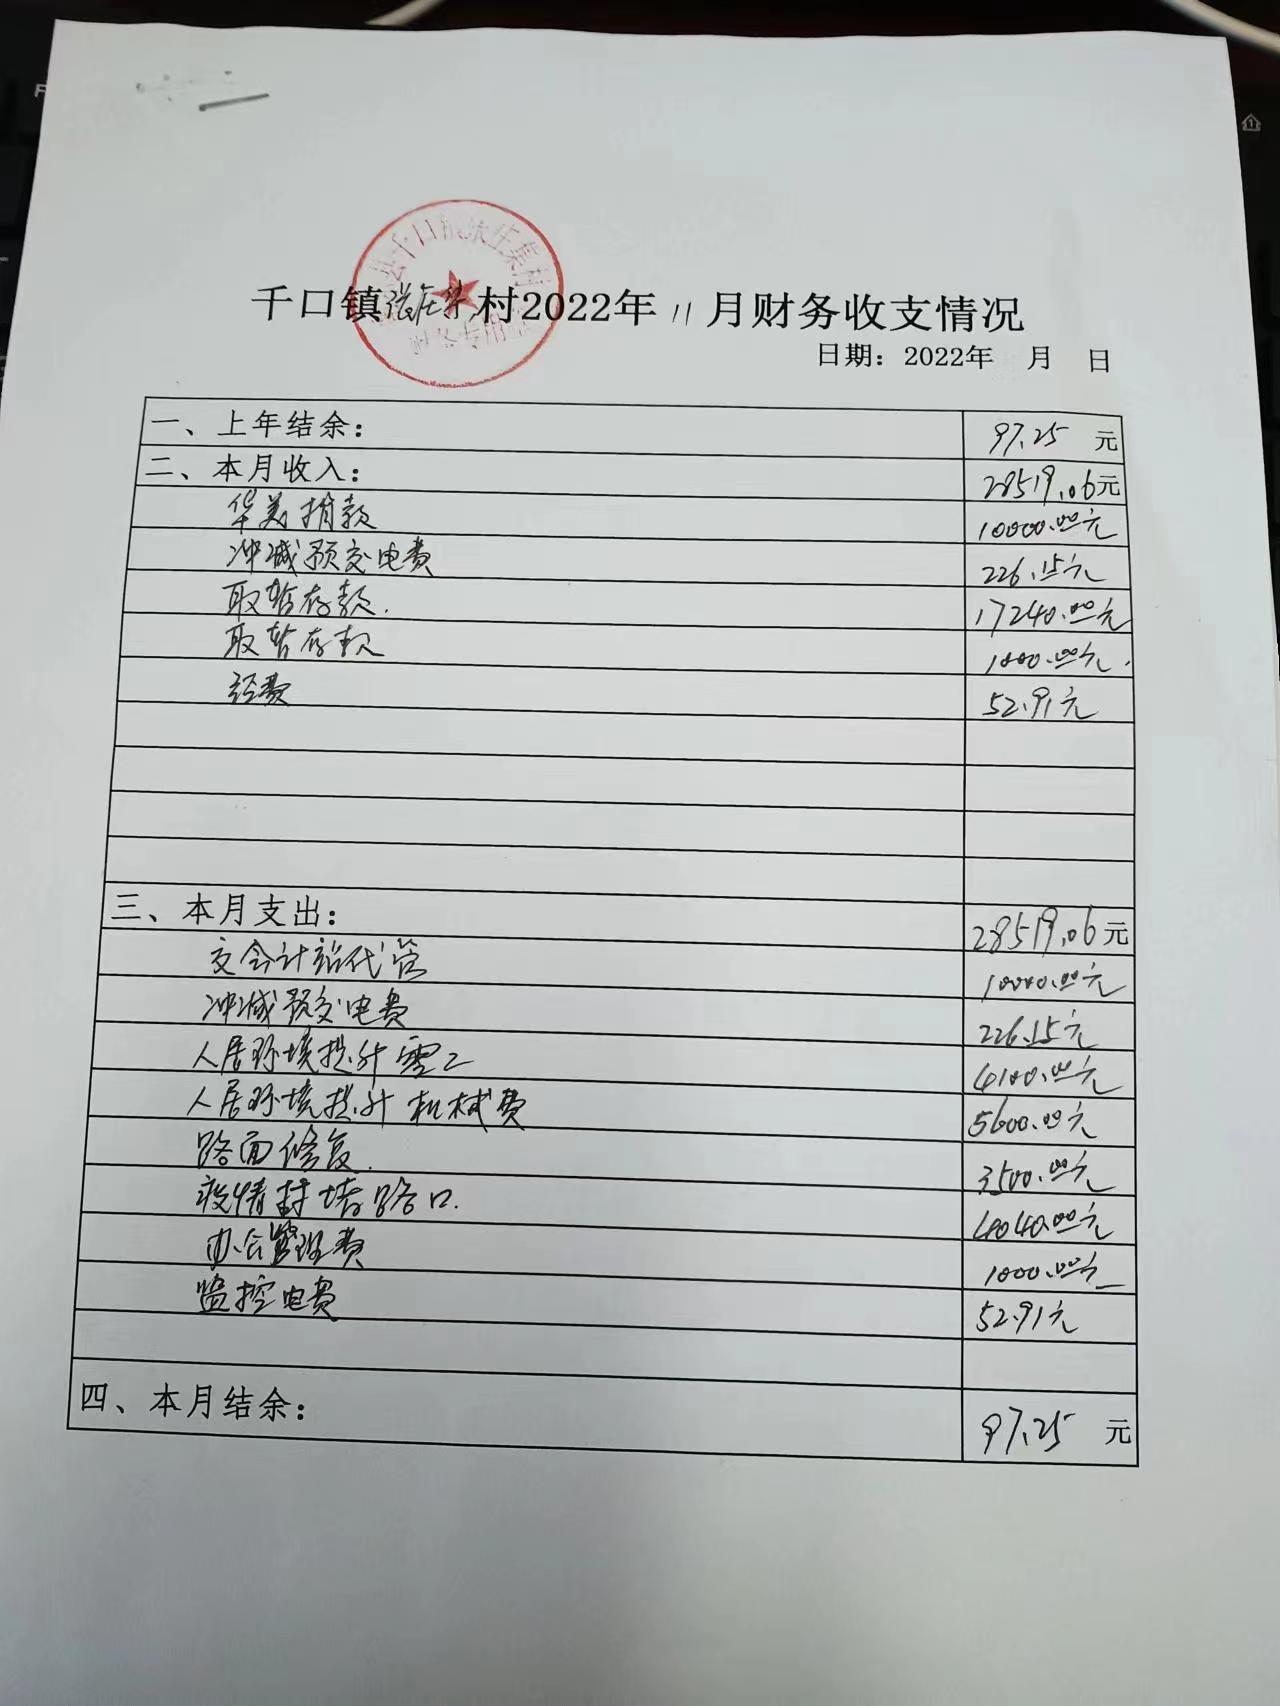 千口镇张庄集村2022年11月财务收支情况
日期：2022年 月 日
一、上年结余： 97.25 元
二、本月收入： 28519.06元
华美捐款 10000.00元
冲减预交电费 226.15元
取暂存款. 17240.00元
取暂存款 1000.00元.
经费 52.91元
三、本月支出： 28519.06元
交会计站代管 10000.00元
冲减预交电费 226.15元
人居环境提升零工 4100.00元
人居环境提升机械费 5600.00元
路面修复. 3500.00元
疫情封堵路口. 4040.00元
办公管理费 1000.00元
监控电费 52.91元
四、本月结余： 97.25 元